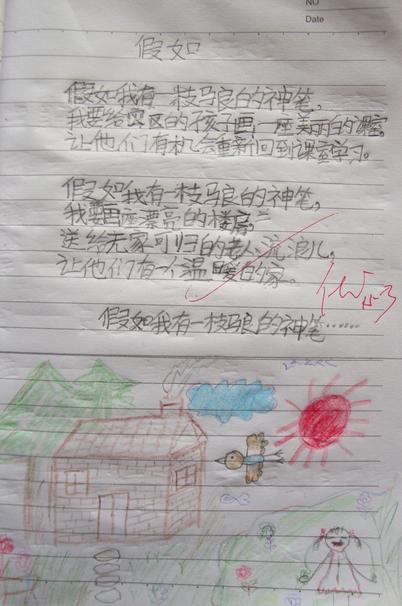 NO
Date
假如
假如我有一枝马良的神笔,
我要给灾区的孩子画一座美丽的课室,
让他们有机会重新回到课室学习。
假如我有一枝马良的神笔,
我要画座漂亮的楼房,
送给无家可归的老人流浪儿,
让他们有一个温暖的家。
优
假如我有一枝马良的神笔……